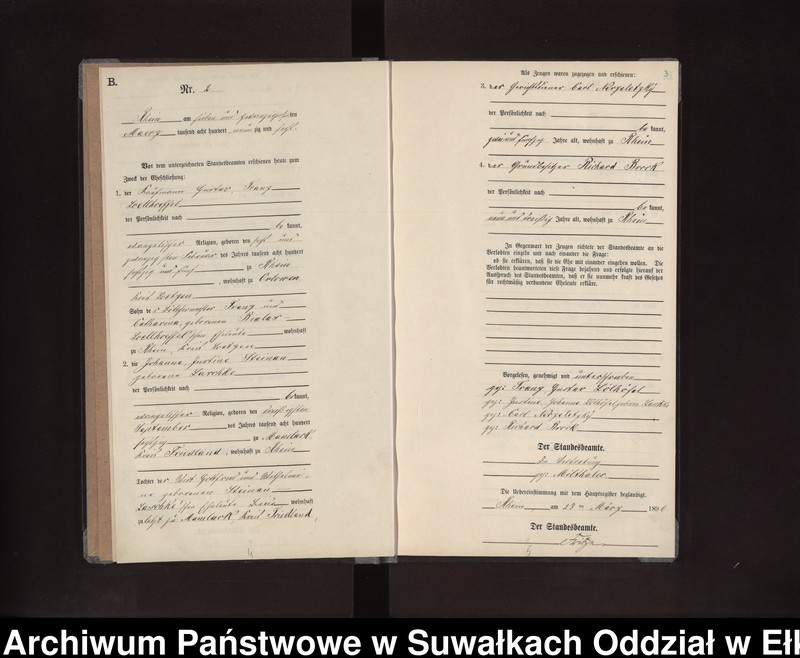 B.
Nr. 2
Rhein am sieben und zwanzigsten
Maerz tausend acht hundert neunzig und sechs.
Vor dem unterzeichneten Standesbeamten erschienen heute zum
Zweck der Eheschließung:
1. der Kaufmann Gustav Franz
der Persönlichkeit nach
be kannt,
evangelischer Religion, geboren den sechs und
zwanzigsten des Jahres tausend acht hundert
sechszig und fünf zu Rhein
, wohnhaft zu Orlowen
Kreis Loetzen
Sohn des Franz und
Catharina, geborenen Bialas
Eheleute wohnhaft
zu Rhein, Kreis Loetzen
2. die Johanna, Justine Steinau
geborene Laschke
der Persönlichkeit nach
be kannt,
evangelischer Religion, geboren den
September des Jahres tausend acht hundert
sechszig zu
Kreis Friedland, wohnhaft zu Rhein
Tochter des Wirt Gottfried und Wilhelmi-
ne geborenen Steinau
Laschke'schen Eheleute wohnhaft
zuletzt zu Kreis Friedland
4
3
Als Zeugen waren zugezogen und erschienen:
3. der Carl
der Persönlichkeit nach
be kannt,
zwei und fünfzig Jahre alt, wohnhaft zu Rhein
4. der Grundbesitzer Richard Borck
der Persönlichkeit nach
be kannt,
neun und dreißig Jahre alt, wohnhaft zu Rhein
In Gegenwart der Zeugen richtete der Standesbeamte an die
Verlobten einzeln und nach einander die Frage:
ob sie erklären, daß sie die Ehe mit einander eingehen wollen. Die
Verlobten beantworteten diese Frage bejahend und erfolgte hierauf der
Ausspruch des Standesbeamten, daß er sie nunmehr kraft des Gesetzes
für rechtmäßig verbundene Eheleute erkläre.
Vorgelesen, genehmigt und unterschrieben
gez. Franz Gustav Zölhöfel
gez. Justine Johanna Zölhöfel geborene Laschke
gez. Carl
gez. Richard Borck
Der Standesbeamte.
In Vertretung
gez. Milthaler
Die Uebereinstimmung mit dem Hauptregister beglaubigt.
Rhein am 28ten März 1896
Der Standesbeamte.
5
Archiwum Państwowe w Suwałkach Oddział w Ełk